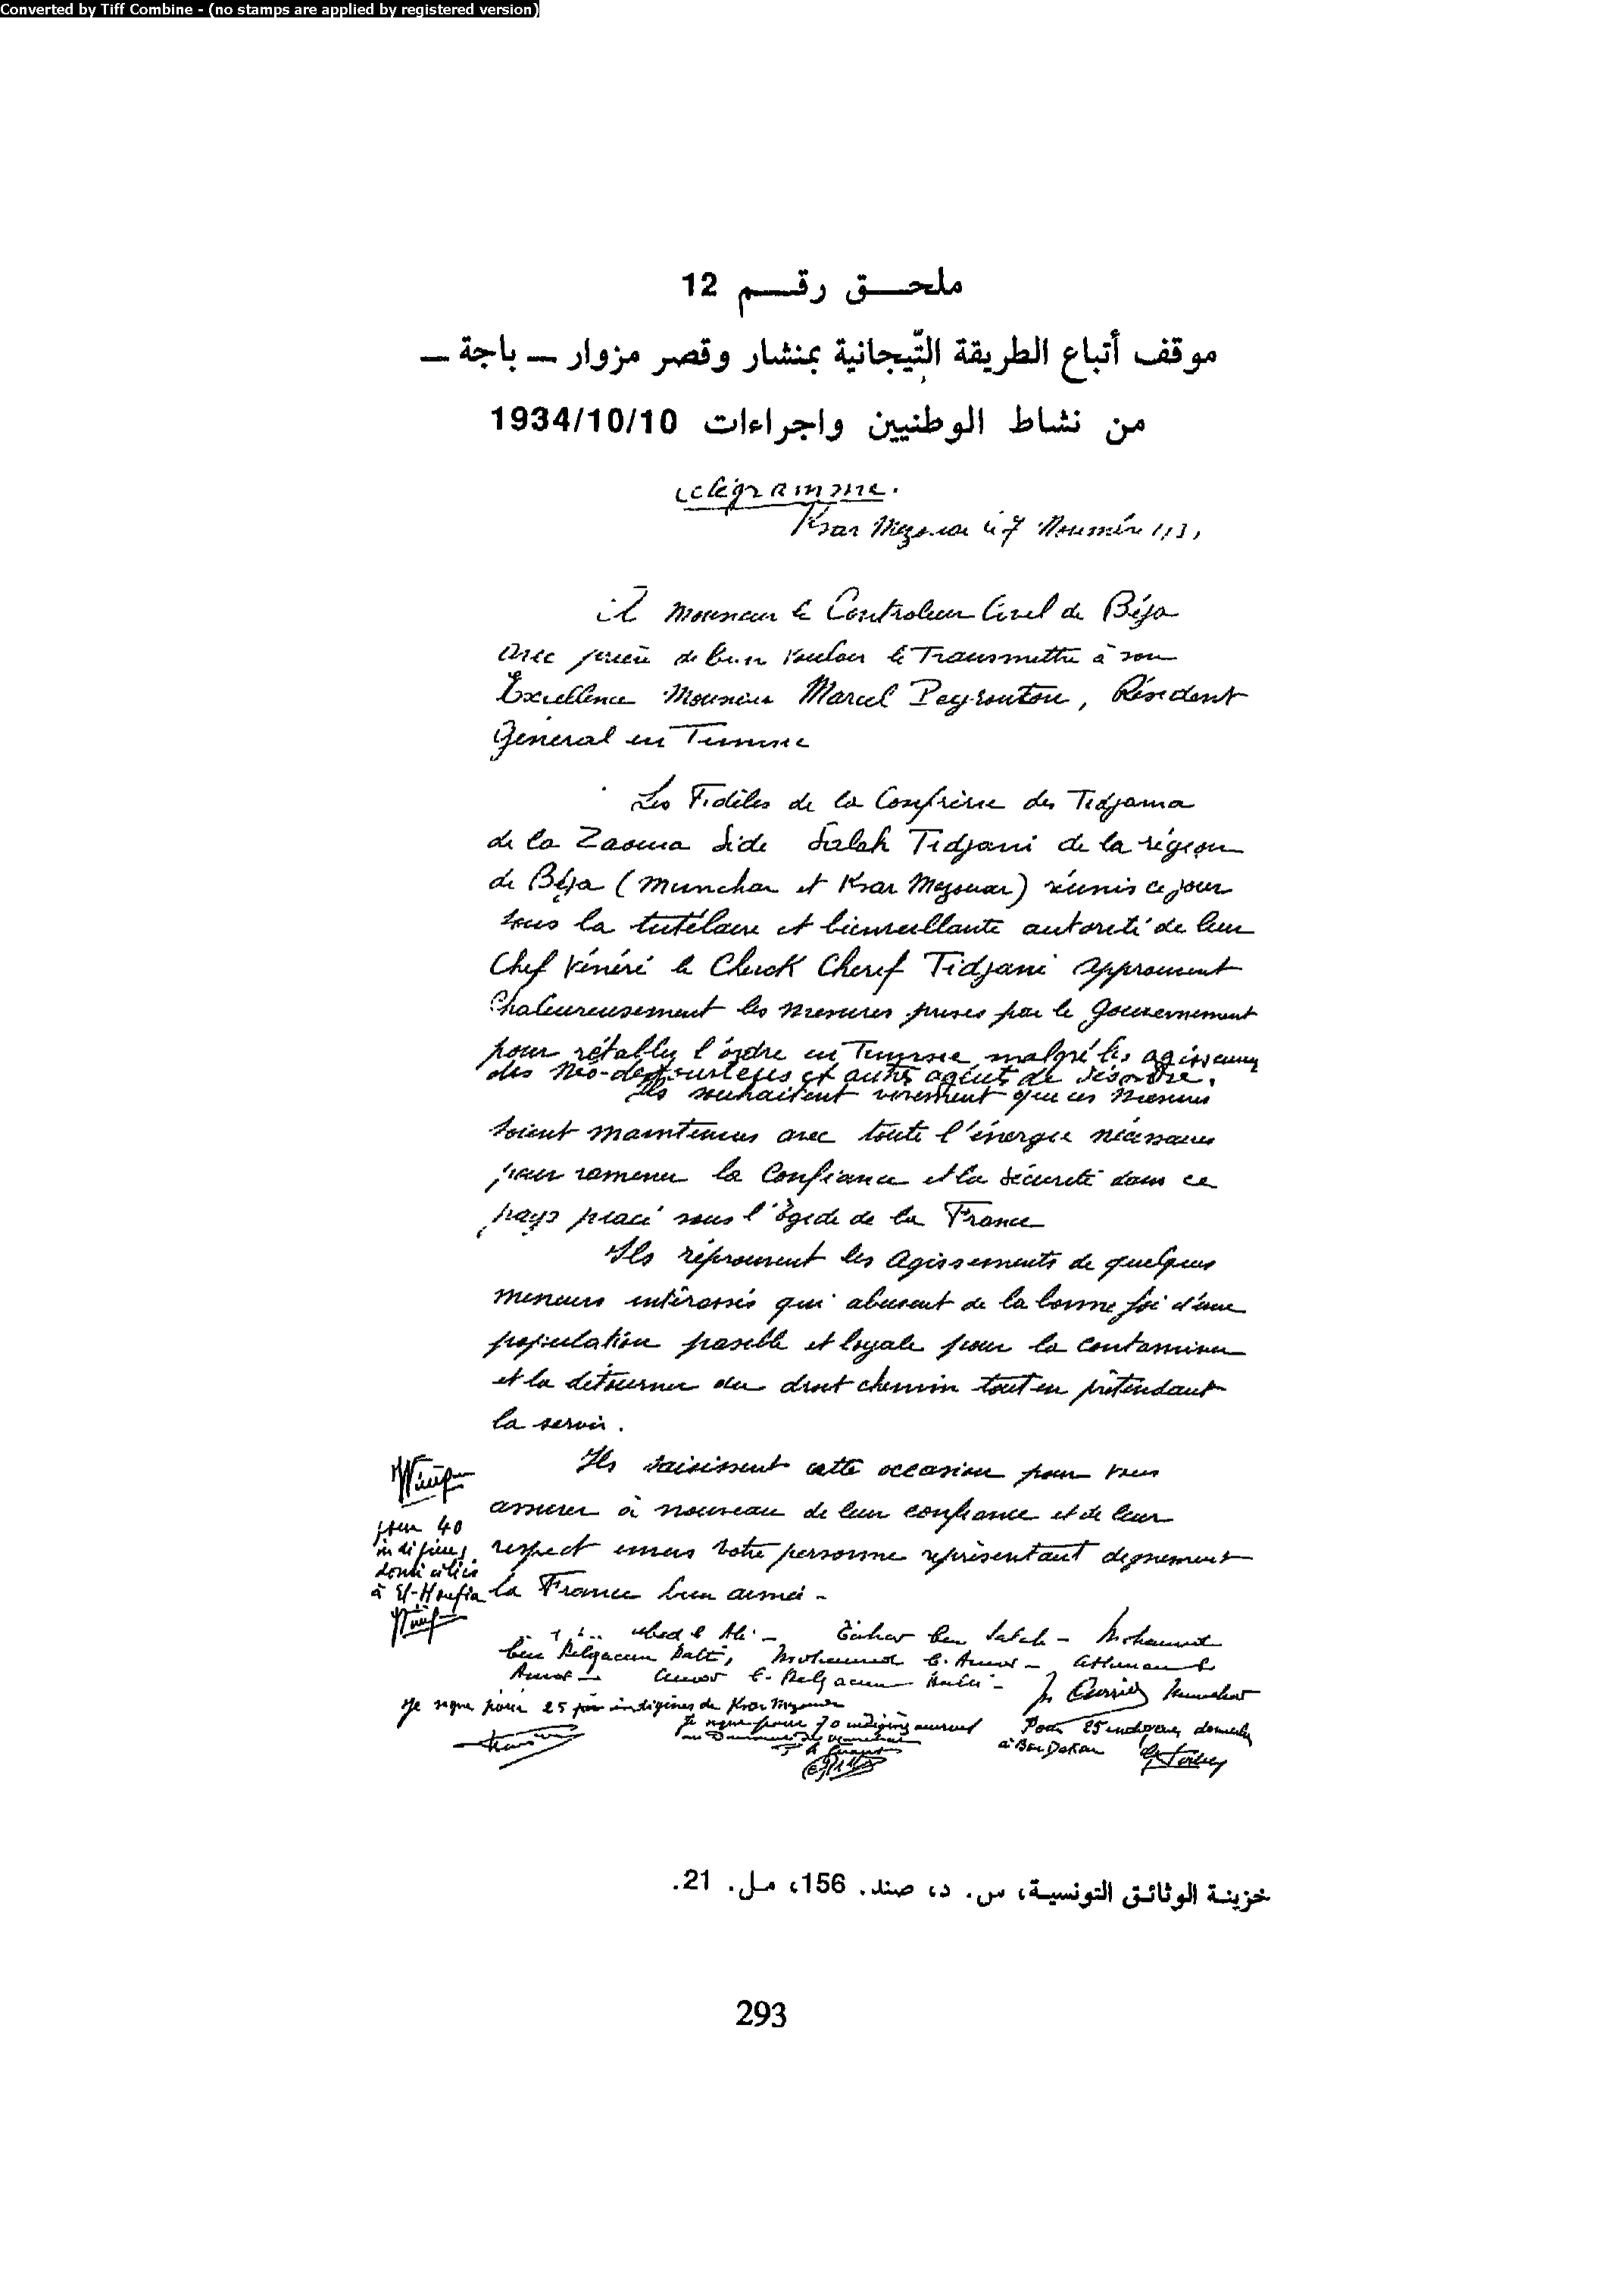 Converted by Tiff Combine - (no stamps are applied by registered version)
ملحق رقم 12
موقف أتباع الطريقة التّيجانية بمنشار وقصر مزوار — باجة —
من نشاط الوطنيين واجراءات 1934/10/10
Télégramme.
Ksar Mezouar le 7 Novembre
A Monsieur le Controleur Civil de Béja
avec prière de bien vouloir le Transmettre à son
Excellence Monsieur Marcel Peyrouton, Résident
Général en Tunisie
Les Fidèles de la Confrérie des Tidjania
de la Zaouia Side Salah Tidjani de la région
de Béja (Munchar et Ksar Mezouar) réunis ce jour
sous la tutélaire et bienveillante autorité de leur
Chef Vénéré le Cheick Cherif Tidjani approuvent
Chaleureusement les mesures prises par le Gouvernement
pour rétablir l'ordre en Tunisie malgré les agissements
des Néo-destouriens et autres agents de désordre.
Ils souhaitent vivement que ces mesures
soient maintenues avec toute l'énergie nécessaire
pour ramener la Confiance et la Sécurité dans ce
pays placé sous l'Egide de la France
Ils réprouvent les agissements de quelques
meneurs intéressés qui abusent de la bonne foi d'une
population paisible et loyale pour la contaminer
et la détourner du droit chemin tout en prétendant
la servir.
Ils saisissent cette occasion pour vous
assurer à nouveau de leur confiance et de leur
respect envers votre personne représentant dignement
la France bien aimée -
pour 40
indigènes
domiciliés
à El-Houfia
Ali - Tahar ben Salah - Mohamed
ben Belgacem Mohamed b. Amor -
Amor - Amor b. Belgacem
Je signe pour 25 indigènes de Ksar Mezouar
Je signe pour 70 indigènes
Pour 25 indigènes domiciliés
à Bou Dakar
خزينة الوثائق التونسية، س. د، صند. 156، مل. 21.
293